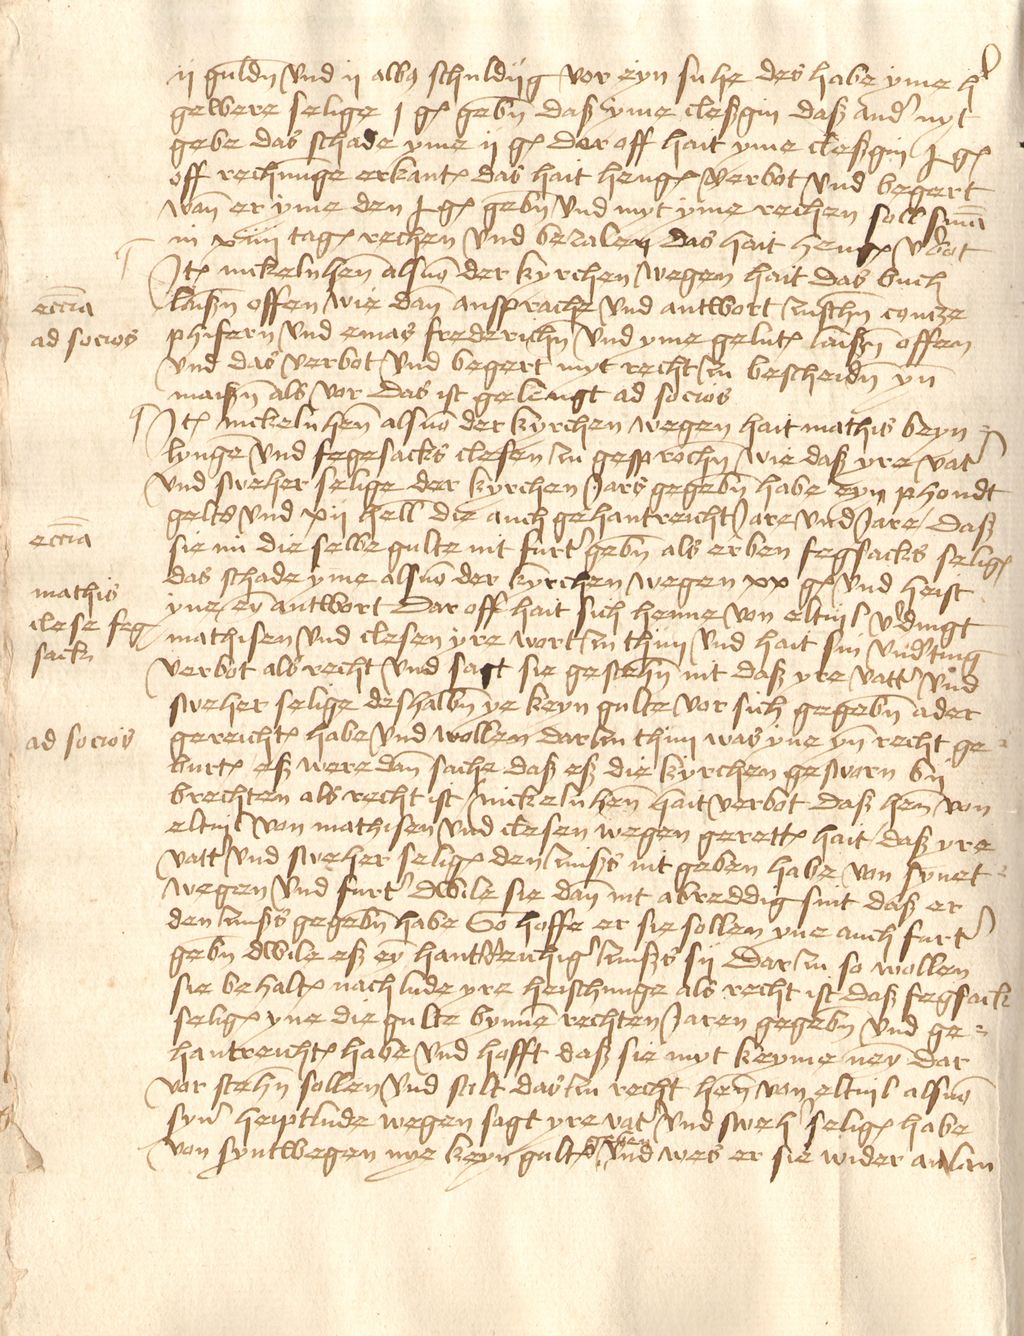 ij guld vnd ij alb schuldig vor eyn suhe des habe yme h
gewere selige j gl geben daß yme cleßgin daß and nyt
gebe das schade yme ij gl dar off hait yme cleßgin j gl
off rechnunge erkant das hait heng verbot vnd begert
wan er yme den j gl geben vnd myt yme rechen soll
in xiiij tag rechen vnd bezalen das hait heng vbot
Jt nickeln hen als von der kyrchen wegen hait das buch
laißn offen wie dan ansprache vnd antwort zuschn contze
phifern vnd emas frederichn vnd yme gelut laißn offen
vnd das verbot vnd begert myt recht zu bescheidn yn
maißn als vor das ist gelengt ad socios
eccia
ad socios
Jt nickeln hen als von der kyrchen wegen hait mathis beyn
lyngen vnd fegesacks clesen zu gesprochn wie daß yre vat
vnd sweher selige der kyrchen Jars gegebn habe eyn phondt
gelts vnd xij hell die auch gehantreicht Jare vnd Jare daß
sie nu die selbe gulte nit furt gebn als erben fegsacks selig
das schade yme als von der kyrchen wegen xx gl vnd heist
yne ey antwort Dar off hait sich henne von eltuil vdingt
mathisen vnd clesen yre wort zu thun vnd hait sin vnd ting
verbot als recht vnd sagt sie gestehn nit daß yre vatt vnd
sweher selige deshalbn ye keyn gulte vor sich gegebn ader
gereicht habe vnd wollen dar zu thun was yne yn recht ge
burt eß were dan sache daß eß die kyrchen gesworn by
brechten als recht ist nickeln hen hait verbot daß hen von
eltuil von mathisen vnd clesen wegen gerett hait daß yre
vatt vnd sweher selig den zinß nit geben habe von synet
wegen vnd furt dwile sie dan nit abreddig sint daß er
den zinß gegebn habe So hoffe er sie sollen yne auch furt
gebn dwile eß ey hantreichig zinß sy Dar zu so wollen
sie behalt nach lude yre heischunge als recht ist daß fegsack
selig yne die gulte bynne rechten Jaren gegebn vnd ge
hantreicht habe vnd hofft daß sie myt keyme ney dar
vor stehn sollen vnd stilt das zu recht hen von eltuil als von
syn heiptlude wegen sagt yre vat vnd sweh selig habe
von syntwegen nye keyn gult geben vnd wes er sie wider anlan
eccia
mathis
clese feg
sack
ad socios